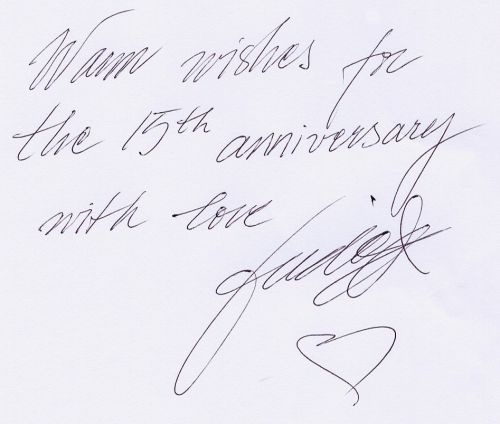 Warm wishes for
the 15th anniversary
with love